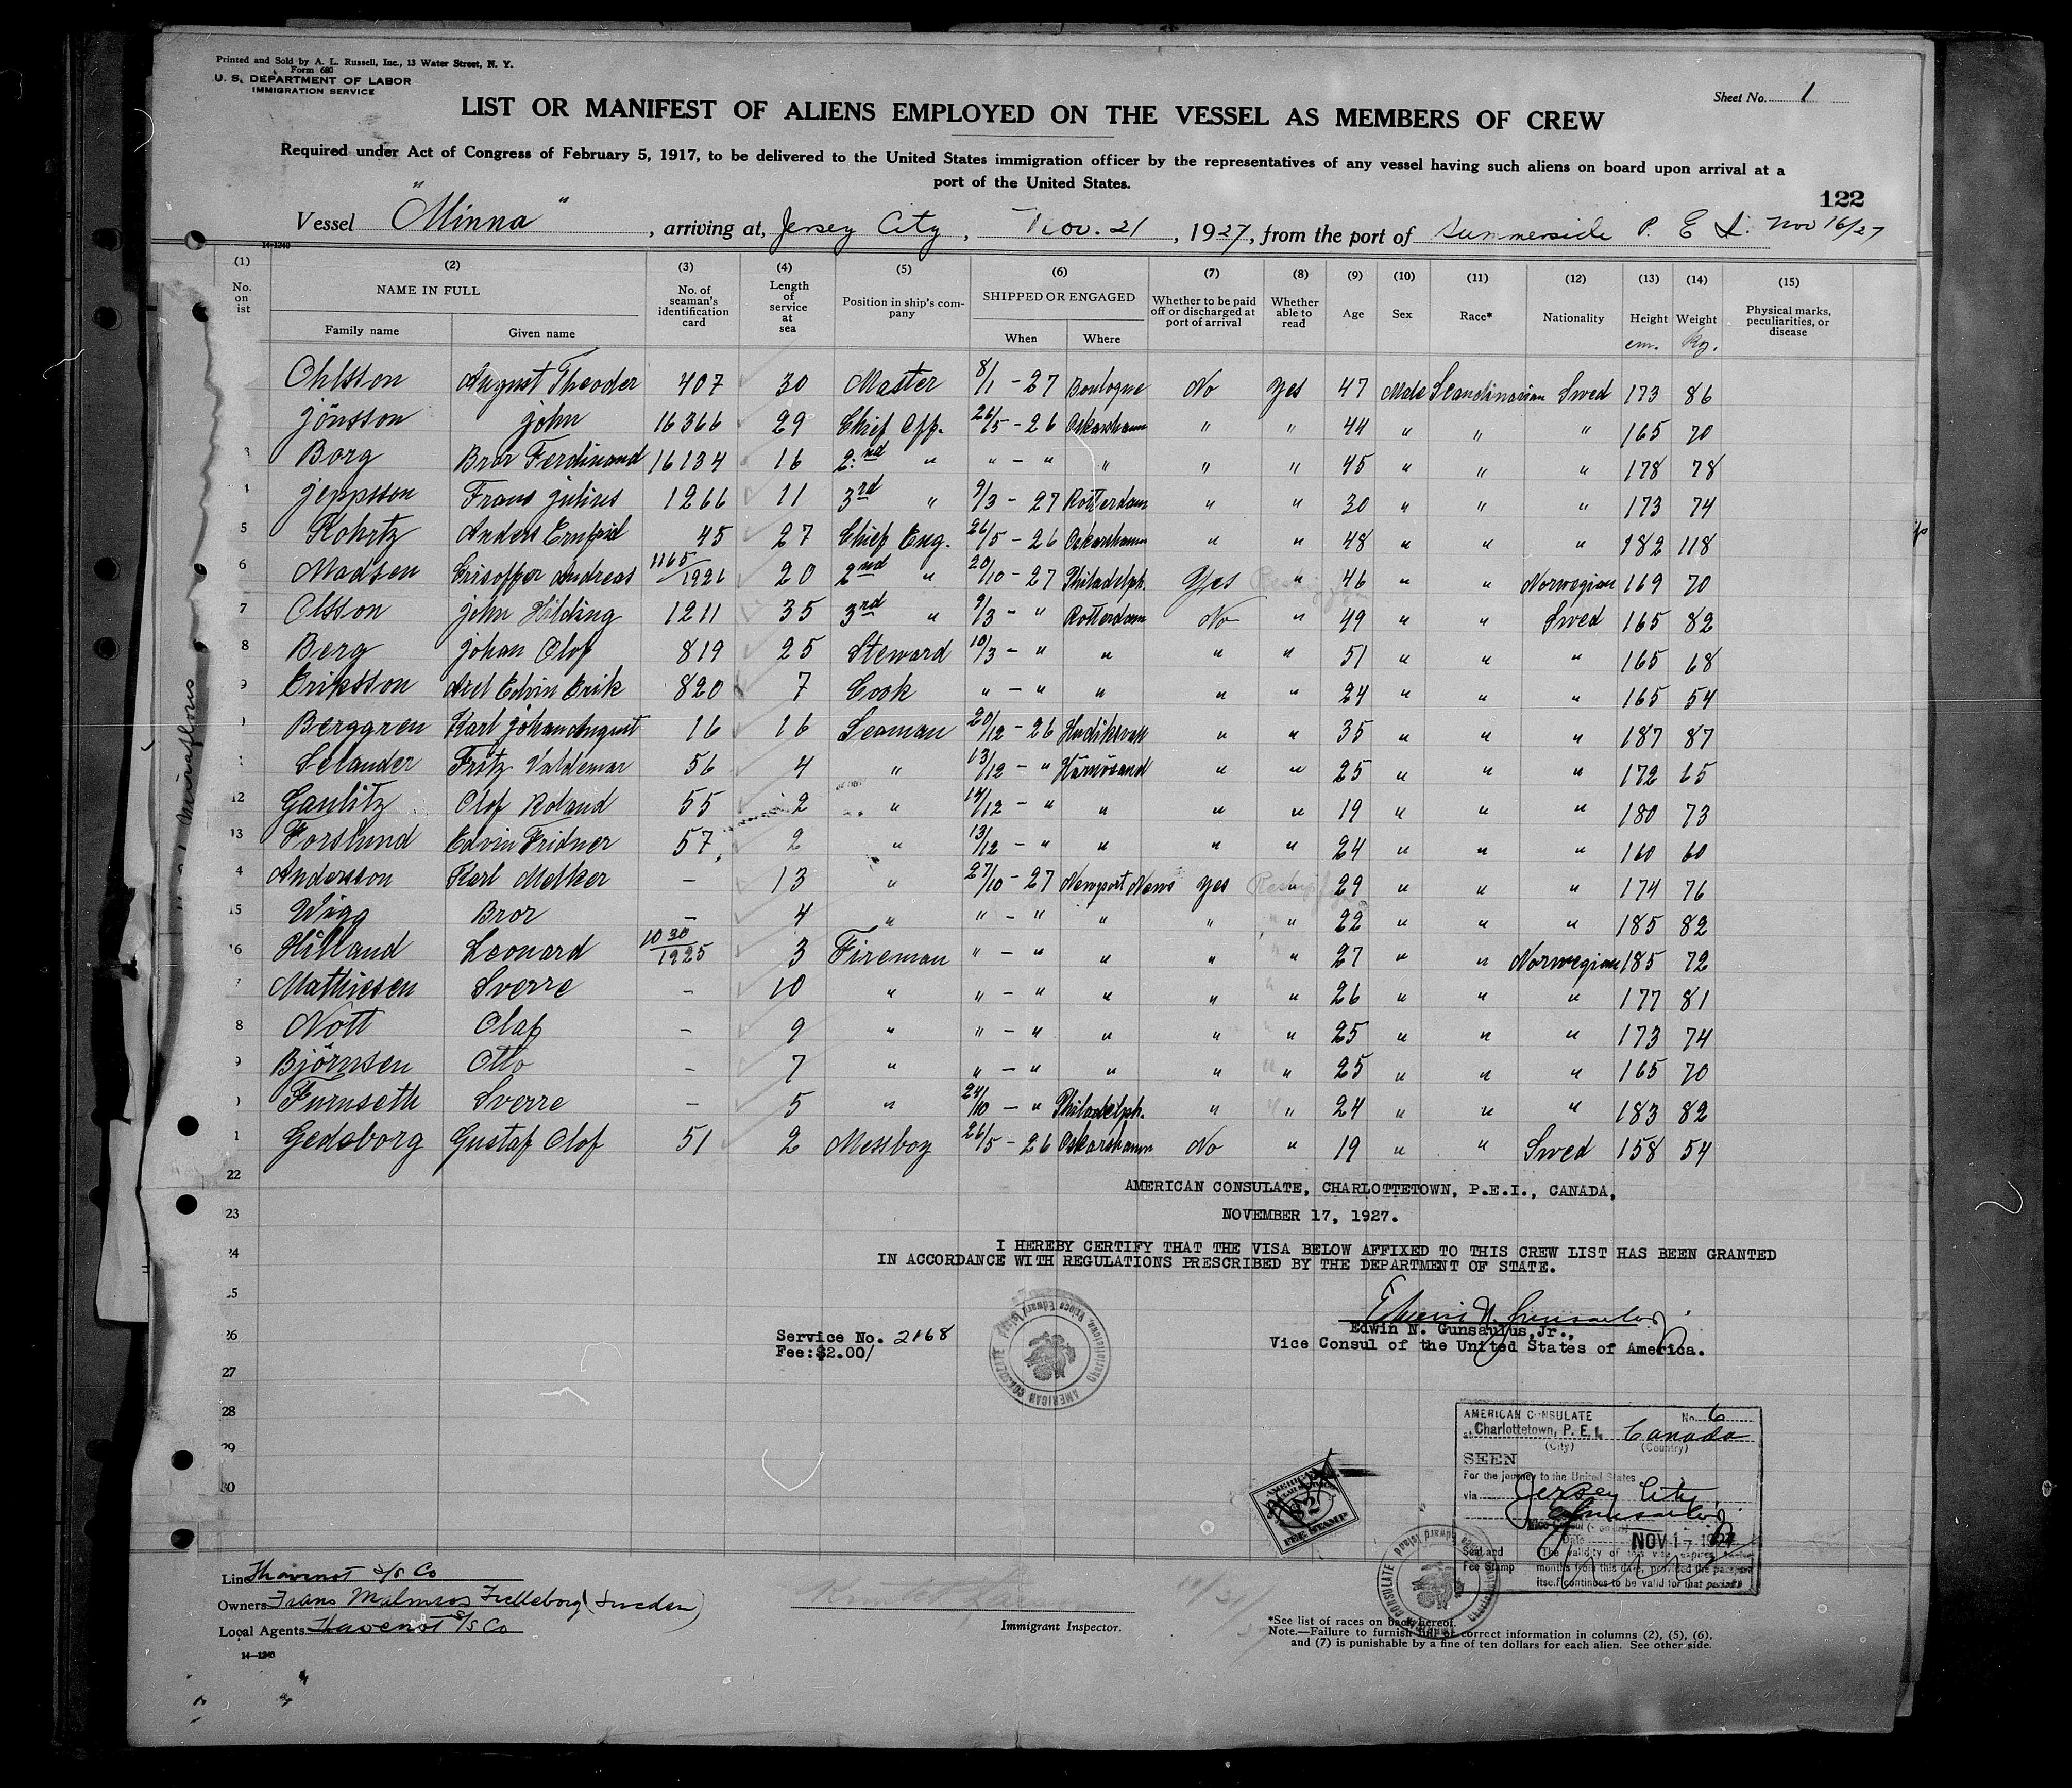 Printed and Sold by A. L. Russell, Inc., 13 Water Street, N. Y.
Form 680
U. S. DEPARTMENT OF LABOR
IMMIGRATION SERVICE
Sheet No. 1
LIST OR MANIFEST OF ALIENS EMPLOYED ON THE VESSEL AS MEMBERS OF CREW
Required under Act of Congress of February 5, 1917, to be delivered to the United States immigration officer by the representatives of any vessel having such aliens on board upon arrival at a
port of the United States.
122
Vessel "Minna", arriving at, Jersey City, Nov. 21, 1927, from the port of Summerside P. E. I. Nov 16/27
14-1240
(1) (2) (3) (4) (5) (6) (7) (8) (9) (10) (11) (12) (13) (14) (15)
No. on ist NAME IN FULL Family name Given name No. of seaman's identification card Length of service at sea Position in ship's company SHIPPED OR ENGAGED When Where Whether to be paid off or discharged at port of arrival Whether able to read Age Sex Race* Nationality Height cm. Weight Kg. Physical marks, peculiarities, or disease
Ohlsson August Theodor 407 30 Master 8/1 - 27 Boulogne No Yes 47 Male Scandinavian Swed 173 86
Jönsson John 16366 29 Chief Off. 26/5 - 26 Oskarshamn " " 44 " " " 165 70
3 Borg Bror Ferdinand 16134 16 2:nd " " - " " " " 45 " " " 178 78
4 Jeppsson Frans Julius 1266 11 3rd " 9/3 - 27 Rotterdam " " 30 " " " 173 74
5 Rohrtz Anders Ernfrid 45 27 Chief Eng. 26/5 - 26 Oskarshamn " " 48 " " " 182 118
6 Madsen Crisoffer Andreas 1165/1926 20 2nd " 20/10 - 27 Philadelph. Yes " 46 " " Norwegian 169 70
7 Olsson John Hilding 1211 35 3rd " 9/3 - " Rotterdam No " 49 " " Swed 165 82
8 Berg Johan Olof 819 25 Steward 10/3 - " " " " 51 " " " 165 68
9 Eriksson Axel Edvin Erik 820 7 Cook " - " " " " 24 " " " 165 54
Berggren Karl Johan August 16 16 Seaman 20/12 - 26 Hudiksvall " " 35 " " " 187 87
Selander Fritz Valdemar 56 4 " 13/12 - " Härnösand " " 25 " " " 172 65
12 Gaulitz Olof Roland 55 2 " 14/12 - " " " " 19 " " " 180 73
13 Forslund Edvin Fridner 57 2 " 13/12 - " " " " 24 " " " 160 60
4 Andersson Karl Melker - 13 " 27/10 - 27 Newport News Yes " 29 " " " 174 76
15 Wigg Bror - 4 " " - " " " " 22 " " " 185 82
16 Hilland Leonard 1030/1925 3 Fireman " - " " " " 27 " " Norwegian 185 72
7 Mathiesen Sverre - 10 " " - " " " " 26 " " " 177 81
8 Nott Olaf - 9 " " - " " " " 25 " " " 173 74
9 Bjørnsen Otto - 7 " " - " " " " 25 " " " 165 70
Furuseth Sverre - 5 " 24/10 - " Philadelph. " " 24 " " " 183 82
1 Gedeborg Gustaf Olof 51 2 Messboy 26/5 - 26 Oskarshamn No " 19 " " Swed 158 54
22
AMERICAN CONSULATE, CHARLOTTETOWN, P.E.I., CANADA,
23
NOVEMBER 17, 1927.
24
I HEREBY CERTIFY THAT THE VISA BELOW AFFIXED TO THIS CREW LIST HAS BEEN GRANTED
IN ACCORDANCE WITH REGULATIONS PRESCRIBED BY THE DEPARTMENT OF STATE.
25
Edwin N. Gunsaulus
26
Service No. 2168
Fee:$2.00/
Edwin N. Gunsaulus,Jr.,
Vice Consul of the United States of America.
AMERICAN CONSULATE Charlottetown, Prince Edward Island
27
28
29
30
AMERICAN CONSULATE No. 6
at Charlottetown, P. E. I. Canada
(City) (Country)
SEEN
For the journey to the United States
via Jersey City
Date NOV 17 1927
Seal and Fee Stamp
(The validity of this visa expires
months from this date, provided the passport
itself continues to be valid for that period)
AMERICAN
$2
FEE STAMP
AMERICAN CONSULATE Charlottetown, Prince Edward Island
Line Thavenot S/S Co
Owners Frans Malmros Trelleborg (Sweden)
Local Agents Thavenot S/S Co
Immigrant Inspector.
14-1240
*See list of races on back hereof.
Note.—Failure to furnish full or correct information in columns (2), (5), (6),
and (7) is punishable by a fine of ten dollars for each alien. See other side.